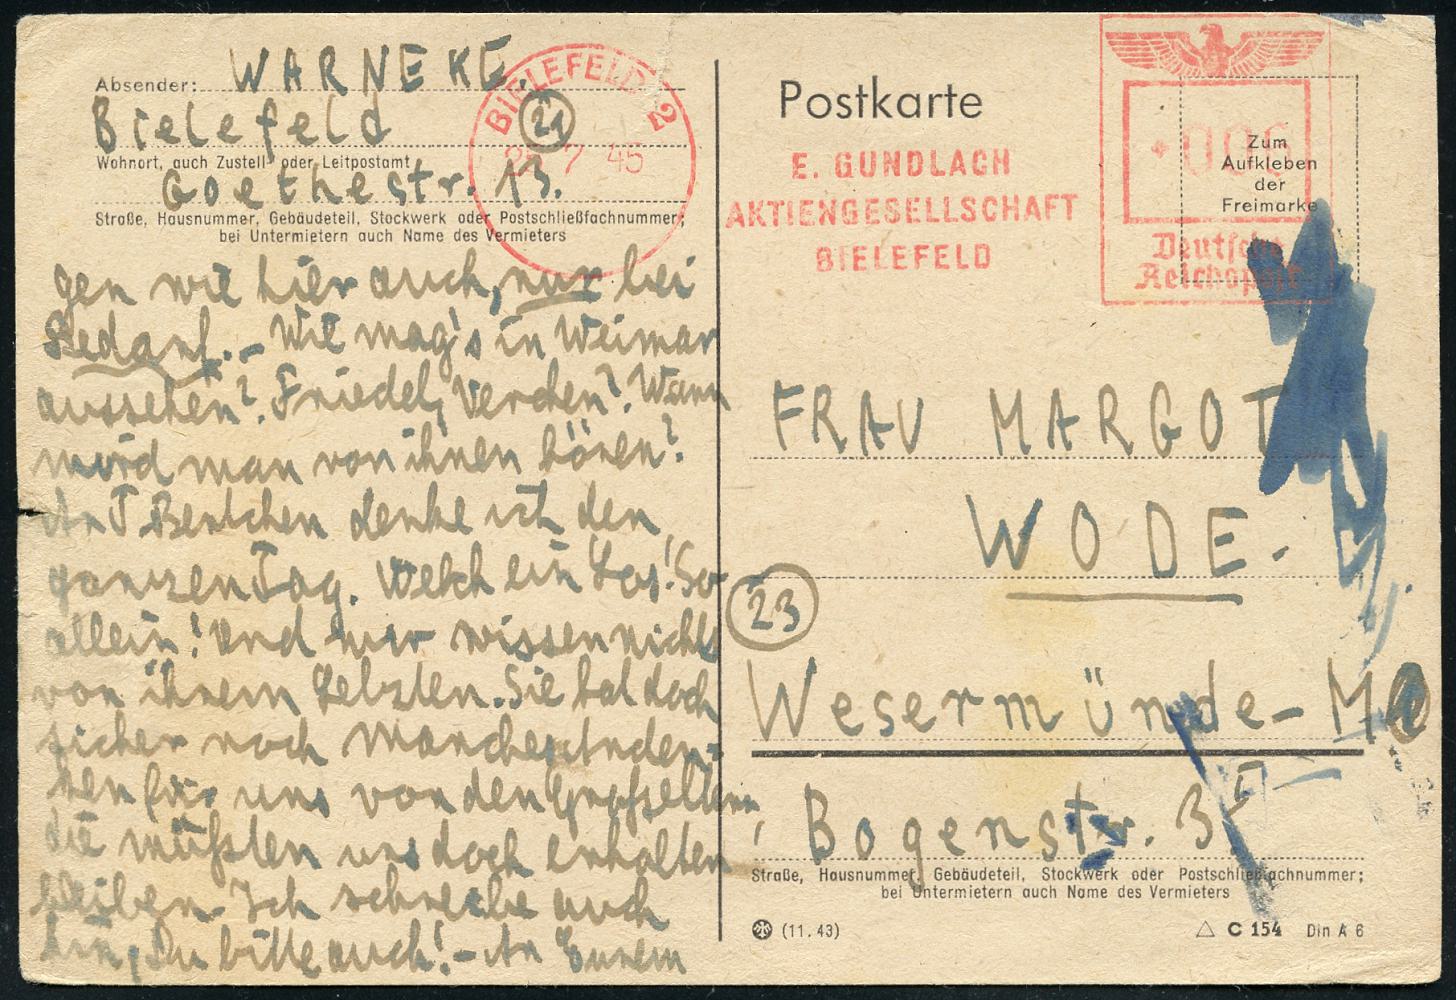 Absender: WARNEKE.
Bielefeld
Wohnort, auch Zustell- oder Leitpostamt
Goethestr. 13.
Straße, Hausnummer, Gebäudeteil, Stockwerk oder Postschließfachnummer;
bei Untermietern auch Name des Vermieters
BIELEFELD 2
21
7 45
gen wie hier auch, nur bei
Bedarf. – Wie mag's in Weimar
aussehen? Friedel, Verchen? Wann
wird man von ihnen hören?
An T. Bertchen denke ich den
ganzen Tag. Welch ein Los! So
allein! Und wir wissen nichts
von ihrem Letzten. Sie hat doch
sicher noch manches Anden-
ken für uns von den Großeltern,
die müßten uns doch erhalten
bleiben. Ich schreibe auch
hin, Du bitte auch! – An Eurem
Postkarte
E. GUNDLACH
AKTIENGESELLSCHAFT
BIELEFELD
006
Deutsche
Reichspost
Zum
Aufkleben
der
Freimarke
FRAU MARGOT
WODE.
23
Wesermünde - M
Bogenstr. 3 I
Straße, Hausnummer, Gebäudeteil, Stockwerk oder Postschließfachnummer;
bei Untermietern auch Name des Vermieters
(11.43)
C 154 Din A 6